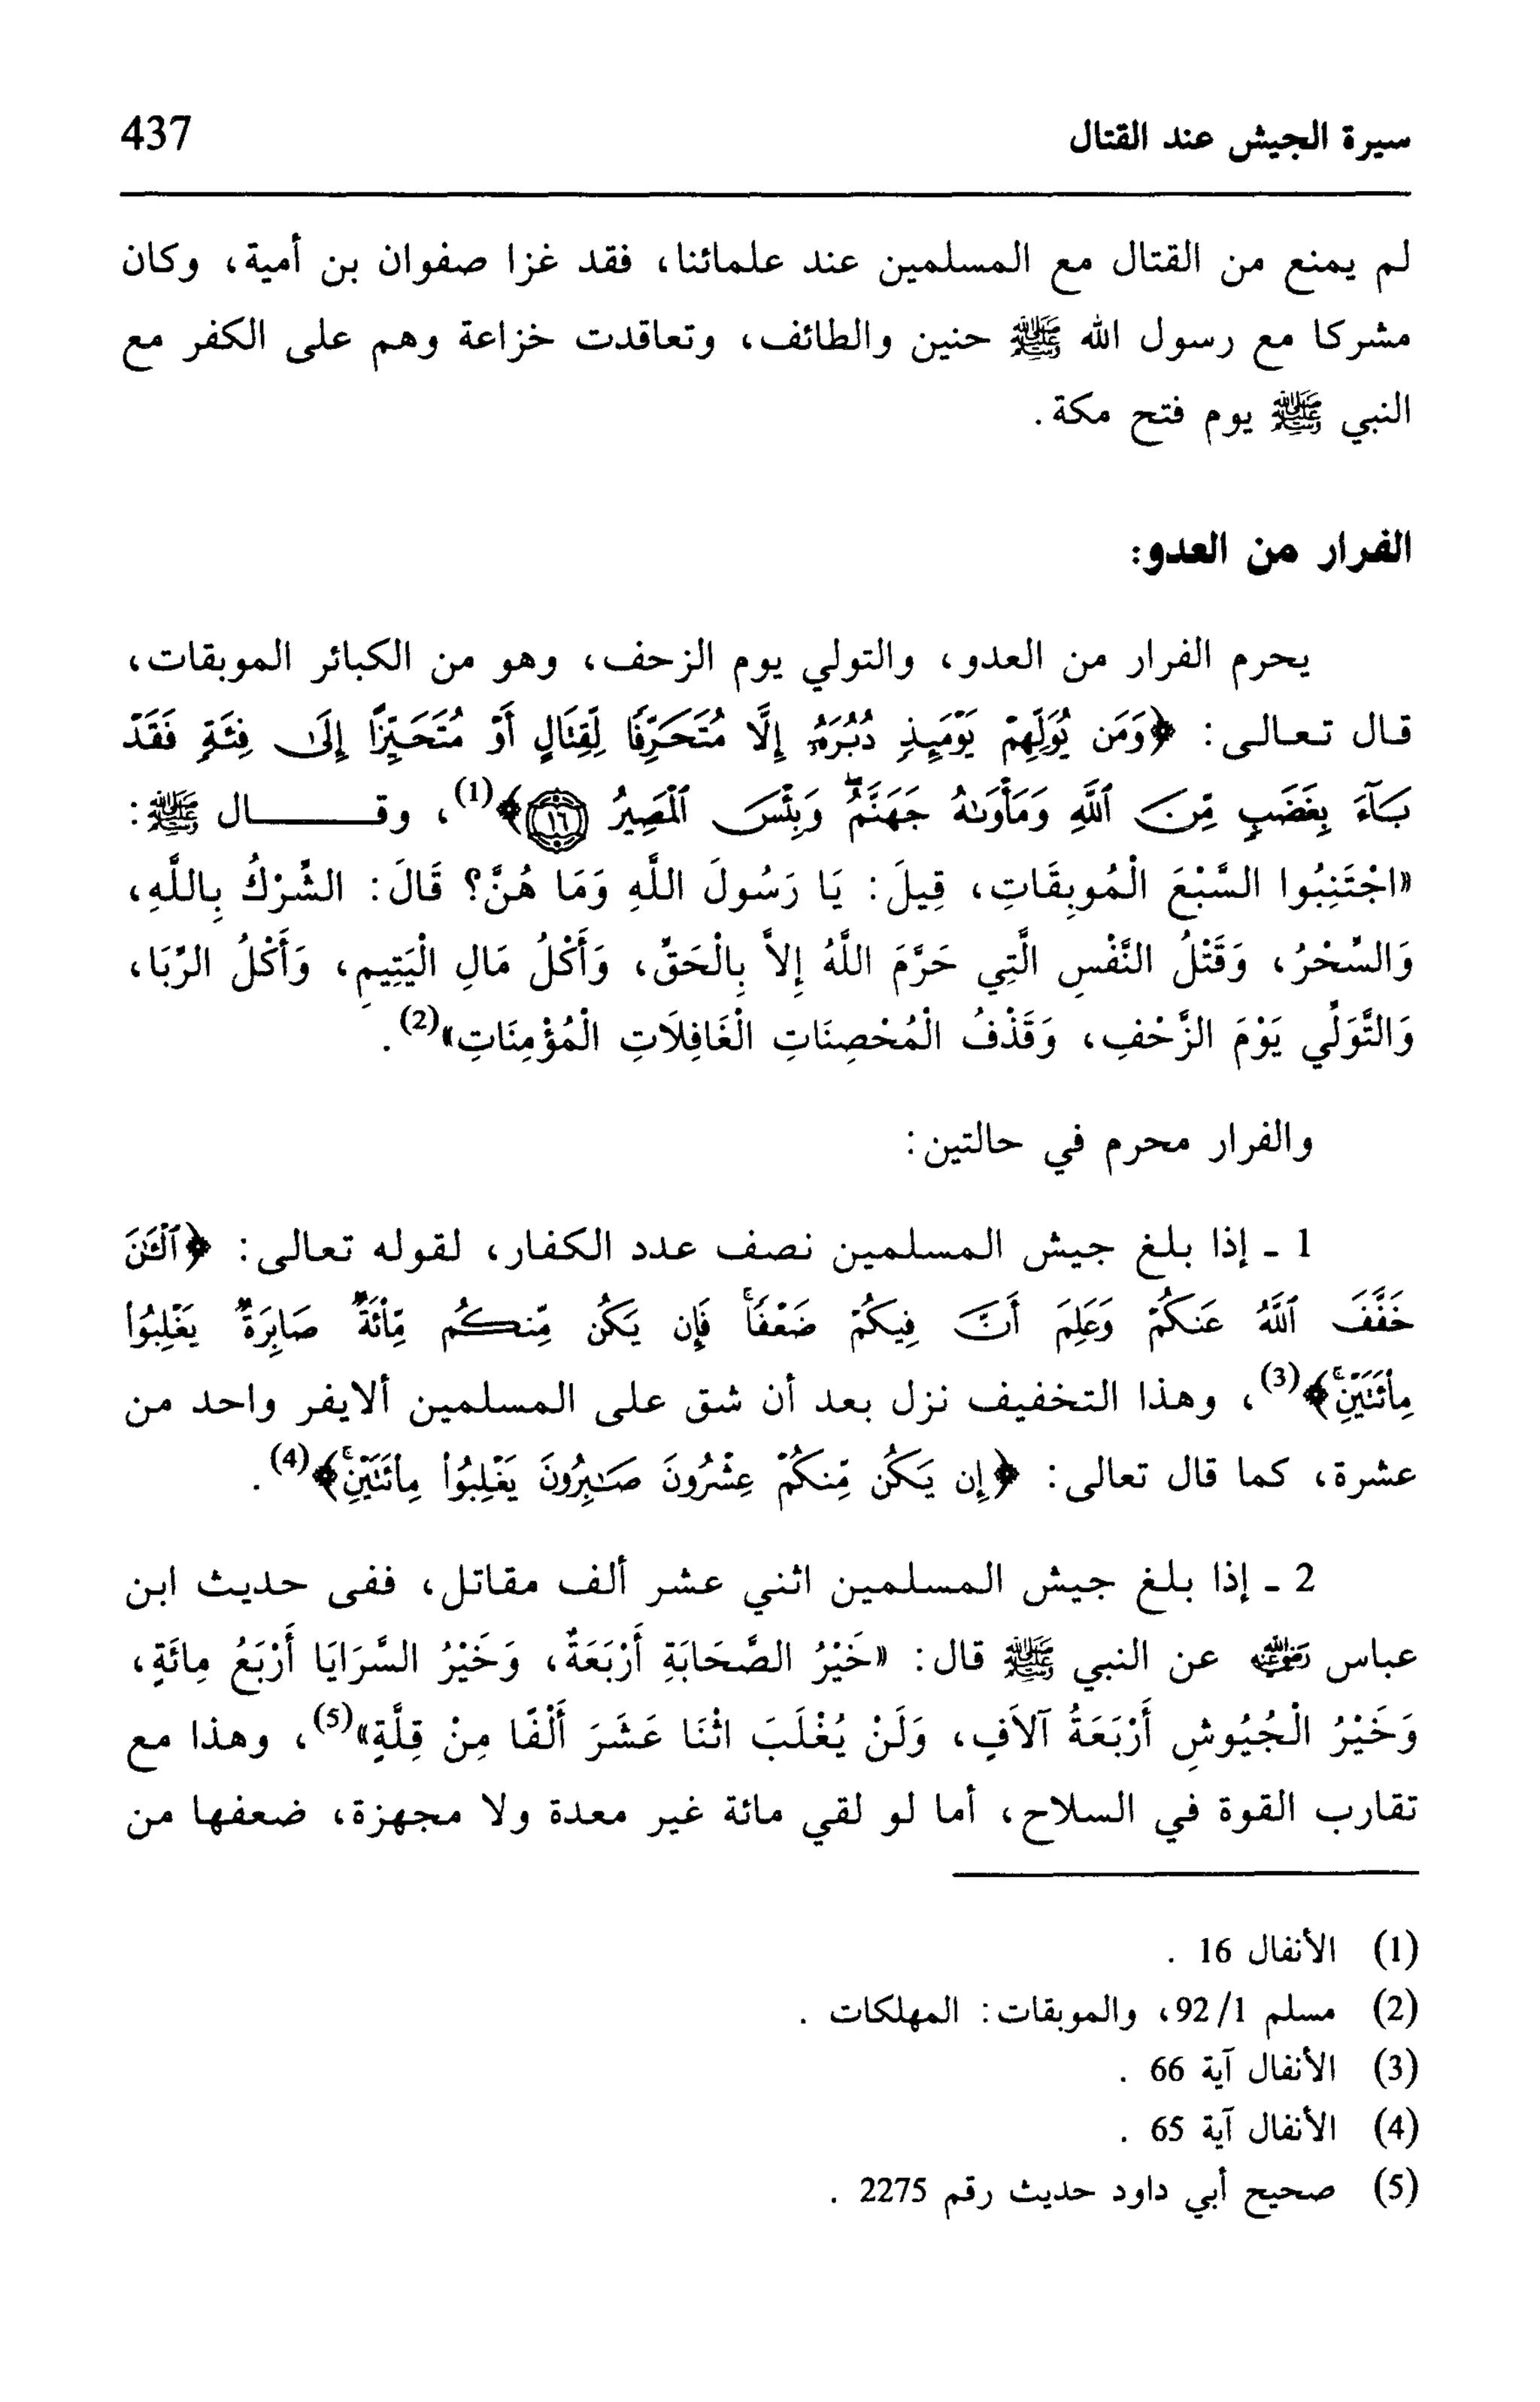 سيرة الجيش عند القتال 437
لم يمنع من القتال مع المسلمين عند علمائنا، فقد غزا صفوان بن أمية، وكان
مشركا مع رسول الله ﷺ حنين والطائف، وتعاقدت خزاعة وهم على الكفر مع
النبي ﷺ يوم فتح مكة.
الفرار من العدو:
يحرم الفرار من العدو، والتولي يوم الزحف، وهو من الكبائر الموبقات،
قال تعالى: ﴿وَمَن يُوَلِّهِمْ يَوْمَئِذٍ دُبُرَهُۥ إِلَّا مُتَحَرِّفًا لِّقِتَالٍ أَوْ مُتَحَيِّزًا إِلَىٰ فِئَةٍ فَقَدْ
بَآءَ بِغَضَبٍ مِّنَ ٱللَّهِ وَمَأْوَىٰهُ جَهَنَّمُ ۖ وَبِئْسَ ٱلْمَصِيرُ ۝١٦﴾(1)، وقـــال ﷺ:
«اجْتَنِبُوا السَّبْعَ الْمُوبِقَاتِ، قِيلَ: يَا رَسُولَ اللَّهِ وَمَا هُنَّ؟ قَالَ: الشِّرْكُ بِاللَّهِ،
وَالسِّحْرُ، وَقَتْلُ النَّفْسِ الَّتِي حَرَّمَ اللَّهُ إِلاَّ بِالْحَقِّ، وَأَكْلُ مَالِ الْيَتِيمِ، وَأَكْلُ الرِّبَا،
وَالتَّوَلِّي يَوْمَ الزَّحْفِ، وَقَذْفُ الْمُحْصِنَاتِ الْغَافِلاَتِ الْمُؤْمِنَاتِ»(2).
والفرار محرم في حالتين:
1 - إذا بلغ جيش المسلمين نصف عدد الكفار، لقوله تعالى: ﴿ٱلْـَٰٔنَ
خَفَّفَ ٱللَّهُ عَنكُمْ وَعَلِمَ أَنَّ فِيكُمْ ضَعْفًا ۚ فَإِن يَكُن مِّنكُم مِّا۟ئَةٌ صَابِرَةٌ يَغْلِبُوا۟
مِا۟ئَتَيْنِ ۚ﴾(3)، وهذا التخفيف نزل بعد أن شق على المسلمين ألايفر واحد من
عشرة، كما قال تعالى: ﴿إِن يَكُن مِّنكُمْ عِشْرُونَ صَـٰبِرُونَ يَغْلِبُوا۟ مِا۟ئَتَيْنِ ۚ﴾(4).
2 - إذا بلغ جيش المسلمين اثني عشر ألف مقاتل، ففى حديث ابن
عباس رضي الله عنه عن النبي ﷺ قال: «خَيْرُ الصَّحَابَةِ أَرْبَعَةٌ، وَخَيْرُ السَّرَايَا أَرْبَعُ مِائَةٍ،
وَخَيْرُ الْجُيُوشِ أَرْبَعَةُ آلاَفٍ، وَلَنْ يُغْلَبَ اثْنَا عَشَرَ أَلْفًا مِنْ قِلَّةٍ»(5)، وهذا مع
تقارب القوة في السلاح، أما لو لقي مائة غير معدة ولا مجهزة، ضعفها من
(1) الأنفال 16 .
(2) مسلم 1/ 92، والموبقات: المهلكات .
(3) الأنفال آية 66 .
(4) الأنفال آية 65 .
(5) صحيح أبي داود حديث رقم 2275 .